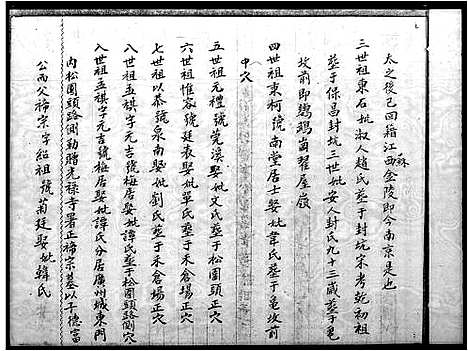 太之後已回籍江西金陵即今南京是也
蘇
三世祖東石妣淑人趙氏葬于封坑宋考乾初祖
葬于保昌封坑三世妣安人封氏九十三歲葬于黽
坟前即鸚鵡崗翟屋嶺
四世祖東柯號南堂居士娶妣韋氏葬于黽坟前
中穴
五世祖元禮號溪娶妣文氏葬于松園頭穴
六世祖惟容號廷表娶妣單氏葬于禾倉塲正穴
七世祖以恭號泉南娶妣劉氏葬于禾倉塲正穴
八世祖孟祺字元吉號梅居娶妣譚氏葬于松園頭路側穴
八世祖孟祺字元吉號梅居娶妣譚氏分居廣州城東門
內松園頭路側勅贈光祿寺署正禘宗墓以子德富
公西父禘宗字紹祖號菊廷娶妣韓氏